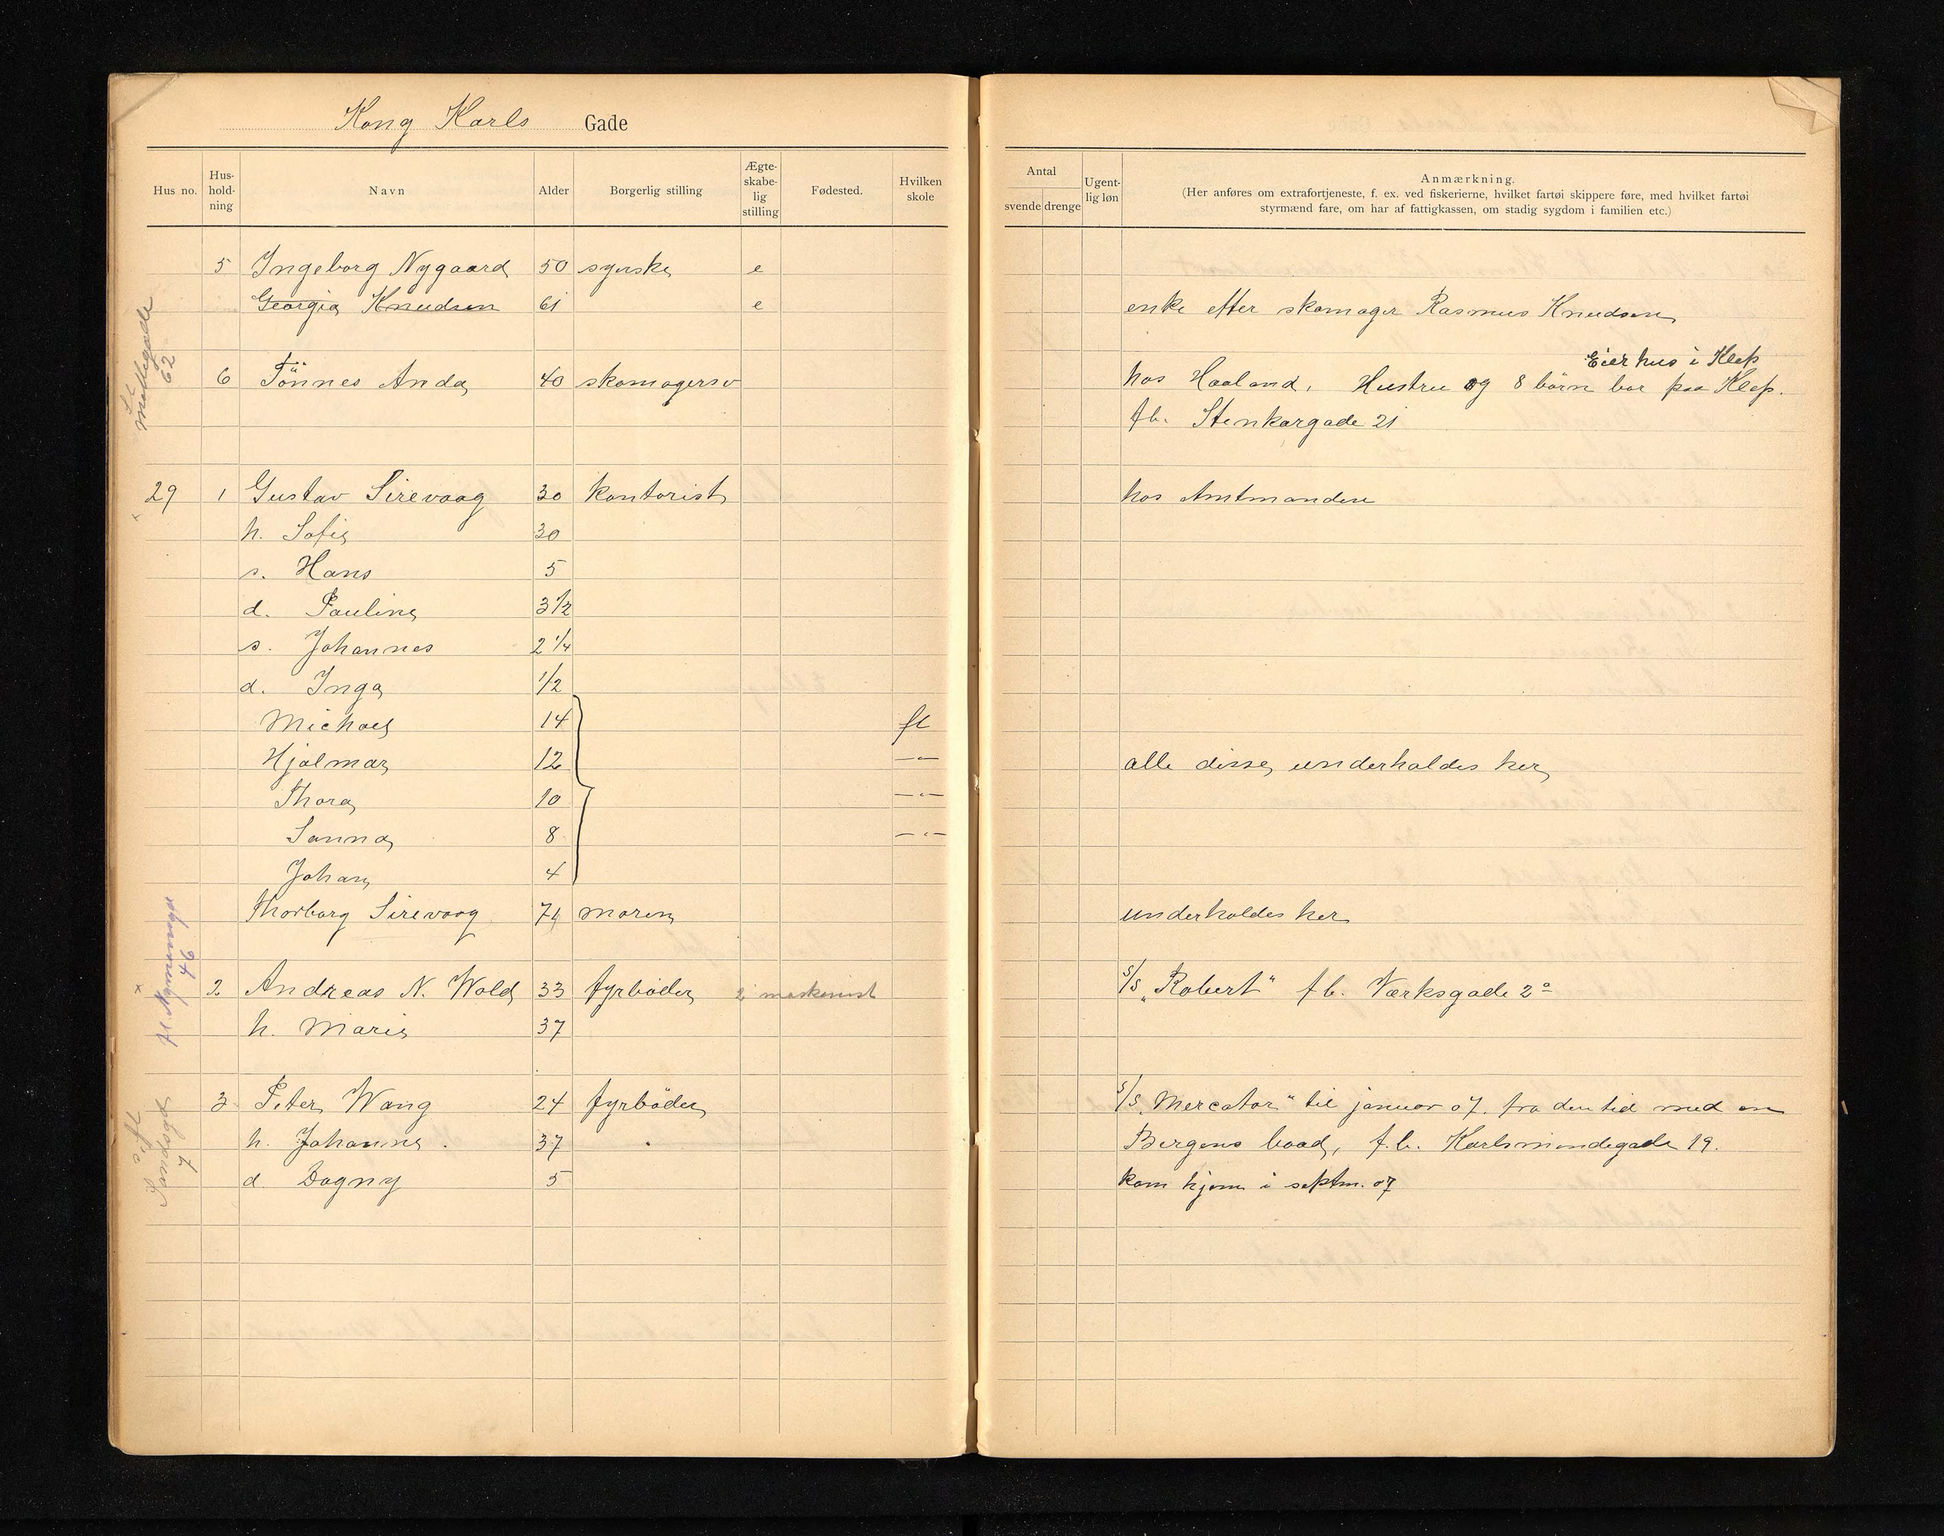 Kong Karls Gade
Hus no. Hus-hold-ning Navn Alder Borgerlig stilling Ægte-skabe-lig stilling Fødested. Hvilken skole
5 Ingeborg Nygaard 50 syerske e
Georgia Knudsen 61 e
6 Tönnes Anda 40 skomagersv
29 1 Gustav Sirevaag 30 kontorist
h. Sofie 30
s. Hans 5
d. Pauline 3 1/2
s. Johannes 2 1/4
d. Inga 1/2
Michael 14 fl
Hjalmar 12 —"—
Thora 10 —"—
Sanna 8 —"—
Johan 4
Thorborg Sirevaag 74 moren
2 Andreas N. Wold 33 fyrböder 2 maskinist
h. Marie 37
3 Peter Wang 24 fyrböder
h. Johanne. 37
d Dagny 5
St
62
46
fl.
Sandsgd
7
Antal
svende drenge
Ugent-lig løn
Anmærkning.
(Her anføres om extrafortjeneste, f. ex. ved fiskerierne, hvilket fartøi skippere føre, med hvilket fartøi
styrmænd fare, om har af fattigkassen, om stadig sygdom i familien etc.)
enke efter skomager Rasmus Knudsen
Eier hus i Klep
hos Haaland. Hustru og 8 börn bor paa Klep.
fb. Stenkargade 21
hos Amtmanden
alle disse underholdes her
underholdes her
s/s "Robert" f b. Værksgade 2a
s/s "Mercator" til januar 07. fra den tid med en
Bergens baad, f. b. Karlsmindegade 19.
kom hjem i septm. 07